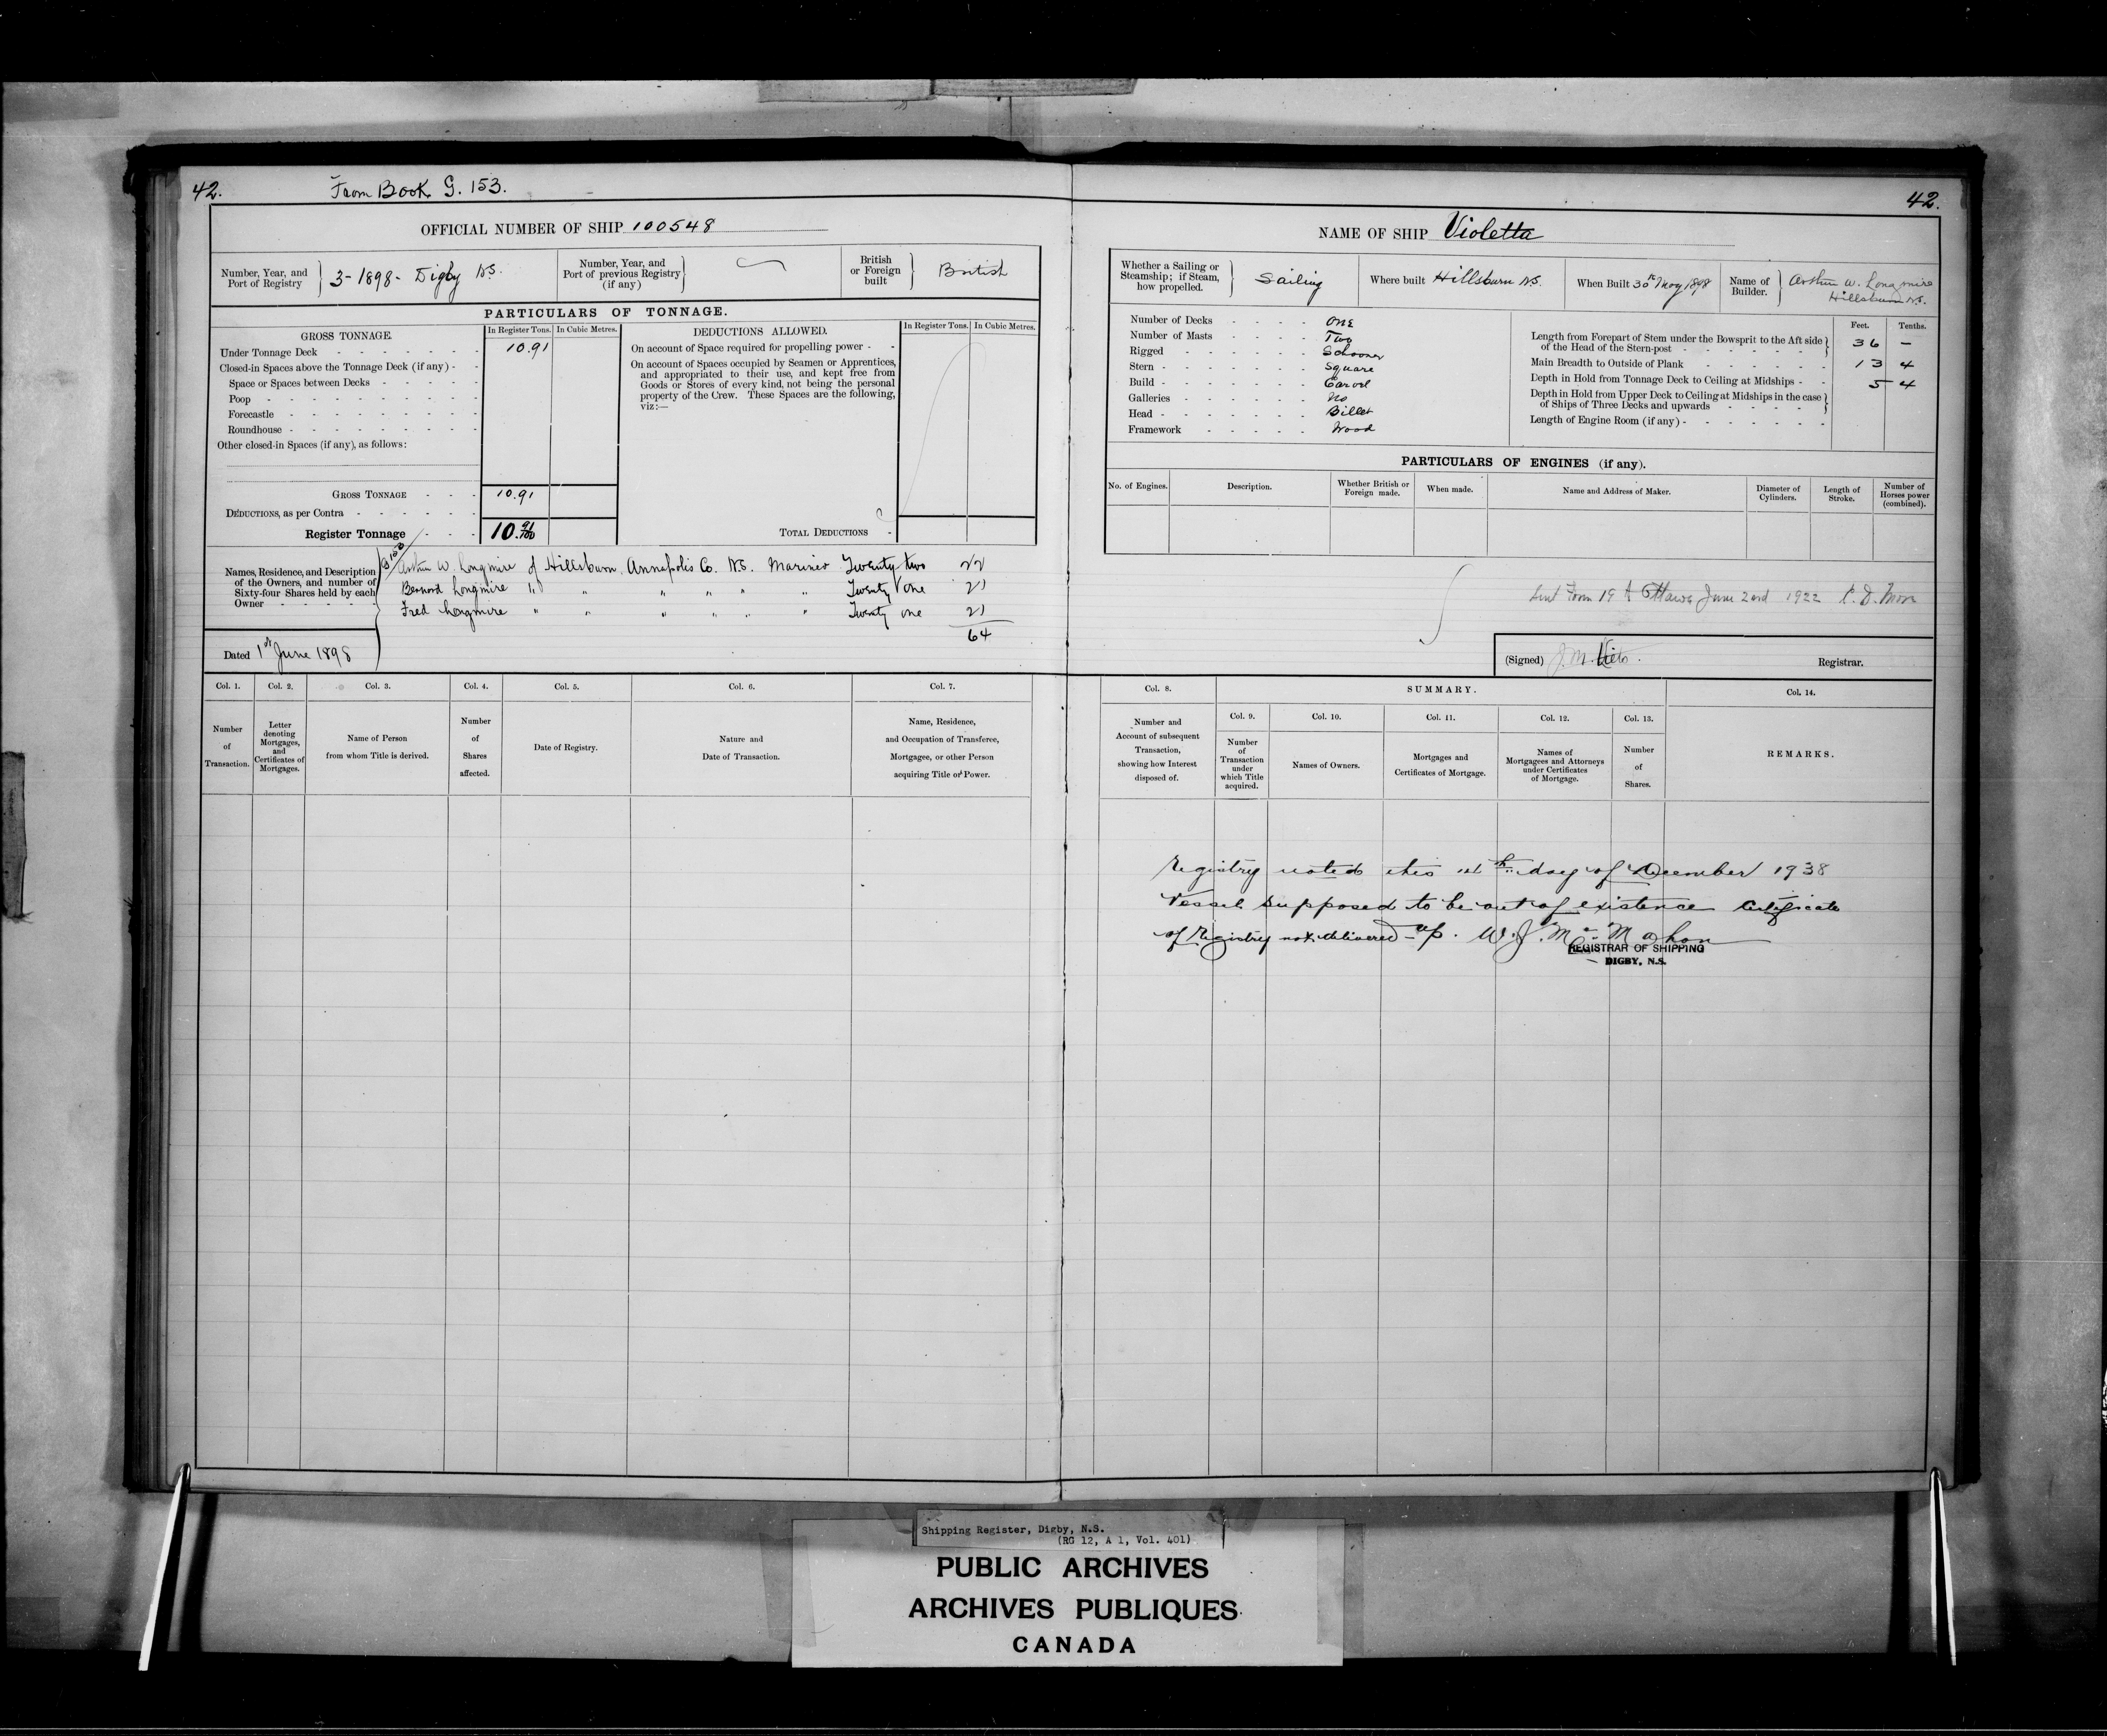 42.
From Book G. 153.
OFFICIAL NUMBER OF SHIP 100548
Number, Year, and Port of Registry } 3-1898- Digby N.S.
Number, Year, and Port of previous Registry (if any) }
British or Foreign built } British
PARTICULARS OF TONNAGE.
GROSS TONNAGE.
In Register Tons. In Cubic Metres.
Under Tonnage Deck - - - - - - - 10.91
Closed-in Spaces above the Tonnage Deck (if any) - -
Space or Spaces between Decks - - - - -
Poop - - - - - - - - - -
Forecastle - - - - - - - - -
Roundhouse - - - - - - - - -
Other closed-in Spaces (if any), as follows:
GROSS TONNAGE - - - 10.91
DEDUCTIONS, as per Contra - - - - - -
Register Tonnage - - - 10 91/100
DEDUCTIONS ALLOWED.
In Register Tons. In Cubic Metres.
On account of Space required for propelling power - -
On account of Spaces occupied by Seamen or Apprentices,
and appropriated to their use, and kept free from
Goods or Stores of every kind, not being the personal
property of the Crew. These Spaces are the following,
viz:—
TOTAL DEDUCTIONS -
Names, Residence, and Description
of the Owners, and number of
Sixty-four Shares held by each
Owner - - - - -
Arthur W. Longmire of Hillsburn, Annapolis Co. N.S. Mariner Twenty two 22
Bernard Longmire " " " " " " Twenty one 21
Fred Longmire " " " " " " Twenty one 21
64
Dated 1st June 1898
Col. 1. Col. 2. Col. 3. Col. 4. Col. 5. Col. 6. Col. 7.
Number of Transaction.
Letter denoting Mortgages, and Certificates of Mortgages.
Name of Person from whom Title is derived.
Number of Shares affected.
Date of Registry.
Nature and Date of Transaction.
Name, Residence, and Occupation of Transferee, Mortgagee, or other Person acquiring Title or Power.
42.
NAME OF SHIP Violetta
Whether a Sailing or Steamship; if Steam, how propelled. } Sailing
Where built Hillsburn N.S.
When Built 30th May 1898
Name of Builder. } Arthur W. Longmire Hillsburn N.S.
Number of Decks - - - - One
Number of Masts - - - - Two
Rigged - - - - - - Schooner
Stern - - - - - - - Square
Build - - - - - - - Carvel
Galleries - - - - - No
Head - - - - - - - Billet
Framework - - - - - Wood
Feet. Tenths.
Length from Forepart of Stem under the Bowsprit to the Aft side of the Head of the Stern-post - - - - - - - 36 –
Main Breadth to Outside of Plank - - - - - - 13 4
Depth in Hold from Tonnage Deck to Ceiling at Midships - - 5 4
Depth in Hold from Upper Deck to Ceiling at Midships in the case of Ships of Three Decks and upwards - - - - -
Length of Engine Room (if any) - - - - - - -
PARTICULARS OF ENGINES (if any).
No. of Engines.
Description.
Whether British or Foreign made.
When made.
Name and Address of Maker.
Diameter of Cylinders.
Length of Stroke.
Number of Horses power (combined).
Sent Form 19 A Ottawa June 22nd 1922
(Signed) J. M. Viets. Registrar.
Col. 8.
Number and Account of subsequent Transaction, showing how Interest disposed of.
SUMMARY.
Col. 9. Col. 10. Col. 11. Col. 12. Col. 13.
Number of Transaction under which Title acquired.
Names of Owners.
Mortgages and Certificates of Mortgage.
Names of Mortgagees and Attorneys under Certificates of Mortgage.
Number of Shares.
Col. 14.
REMARKS.
Registry noted this day of December 1938
Vessel supposed to be out of existence Certificate
of Registry not delivered up. W. J. McMahon
REGISTRAR OF SHIPPING
DIGBY, N.S.
Shipping Register, Digby, N.S.
(RG 12, A 1, Vol. 401)
PUBLIC ARCHIVES
ARCHIVES PUBLIQUES
CANADA